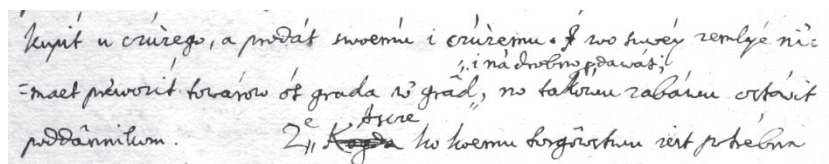 kupít u czúżego, a prodát swoemu i czúżemu. I wo swéy zemlyé ni=
„ i ná drobno pdawát;
=maet préwozit towárow ós grada w' grad„, no takówu zabáwu ostáwit
poddánnikom. 2e„ Ascze ko koemu torgówstwu iest potrébna